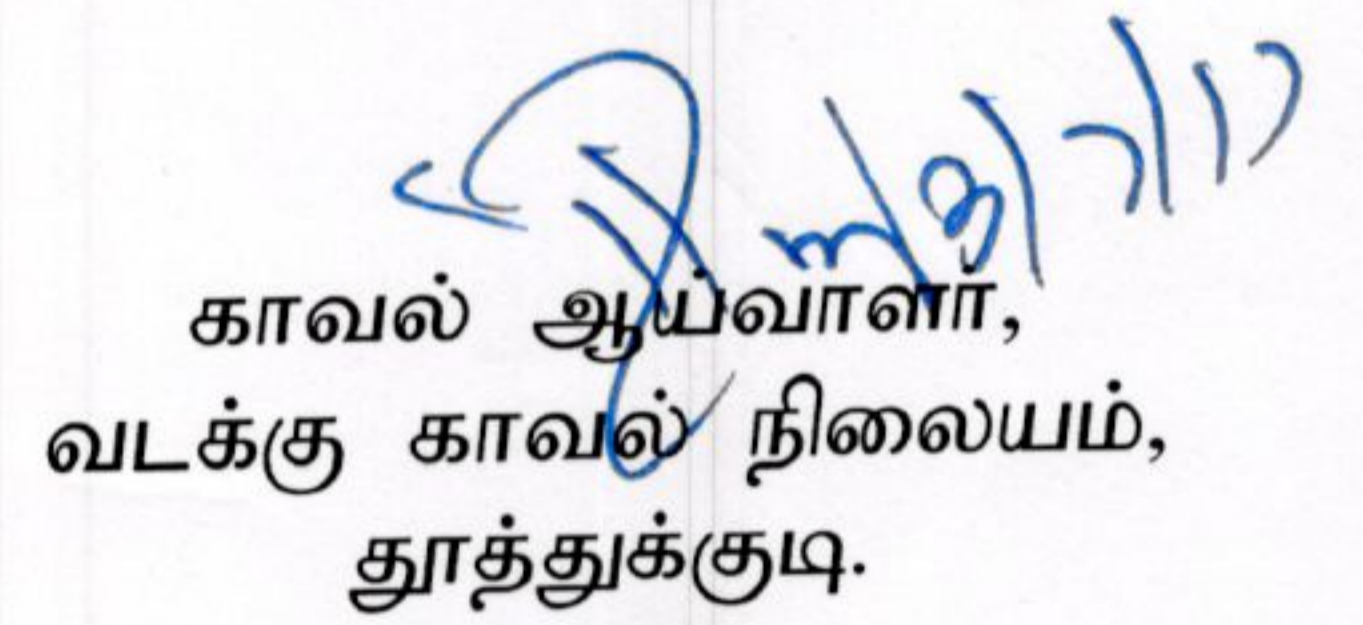 காவல் ஆய்வாளர்,
வடக்கு காவல் நிலையம்,
தூத்துக்குடி.